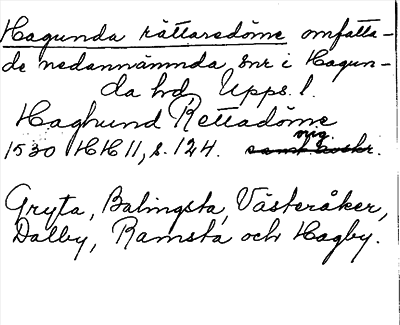 Hagunda rättaredöme omfatta-
de nedannämnda snr i Hagun-
da hd, Upps. l.
Haghund Rettadöme
nig.
1530 HH 11, s. 124.
Gryta, Balingsta, Västeråker,
Dalby, Ramsta och Hagby.